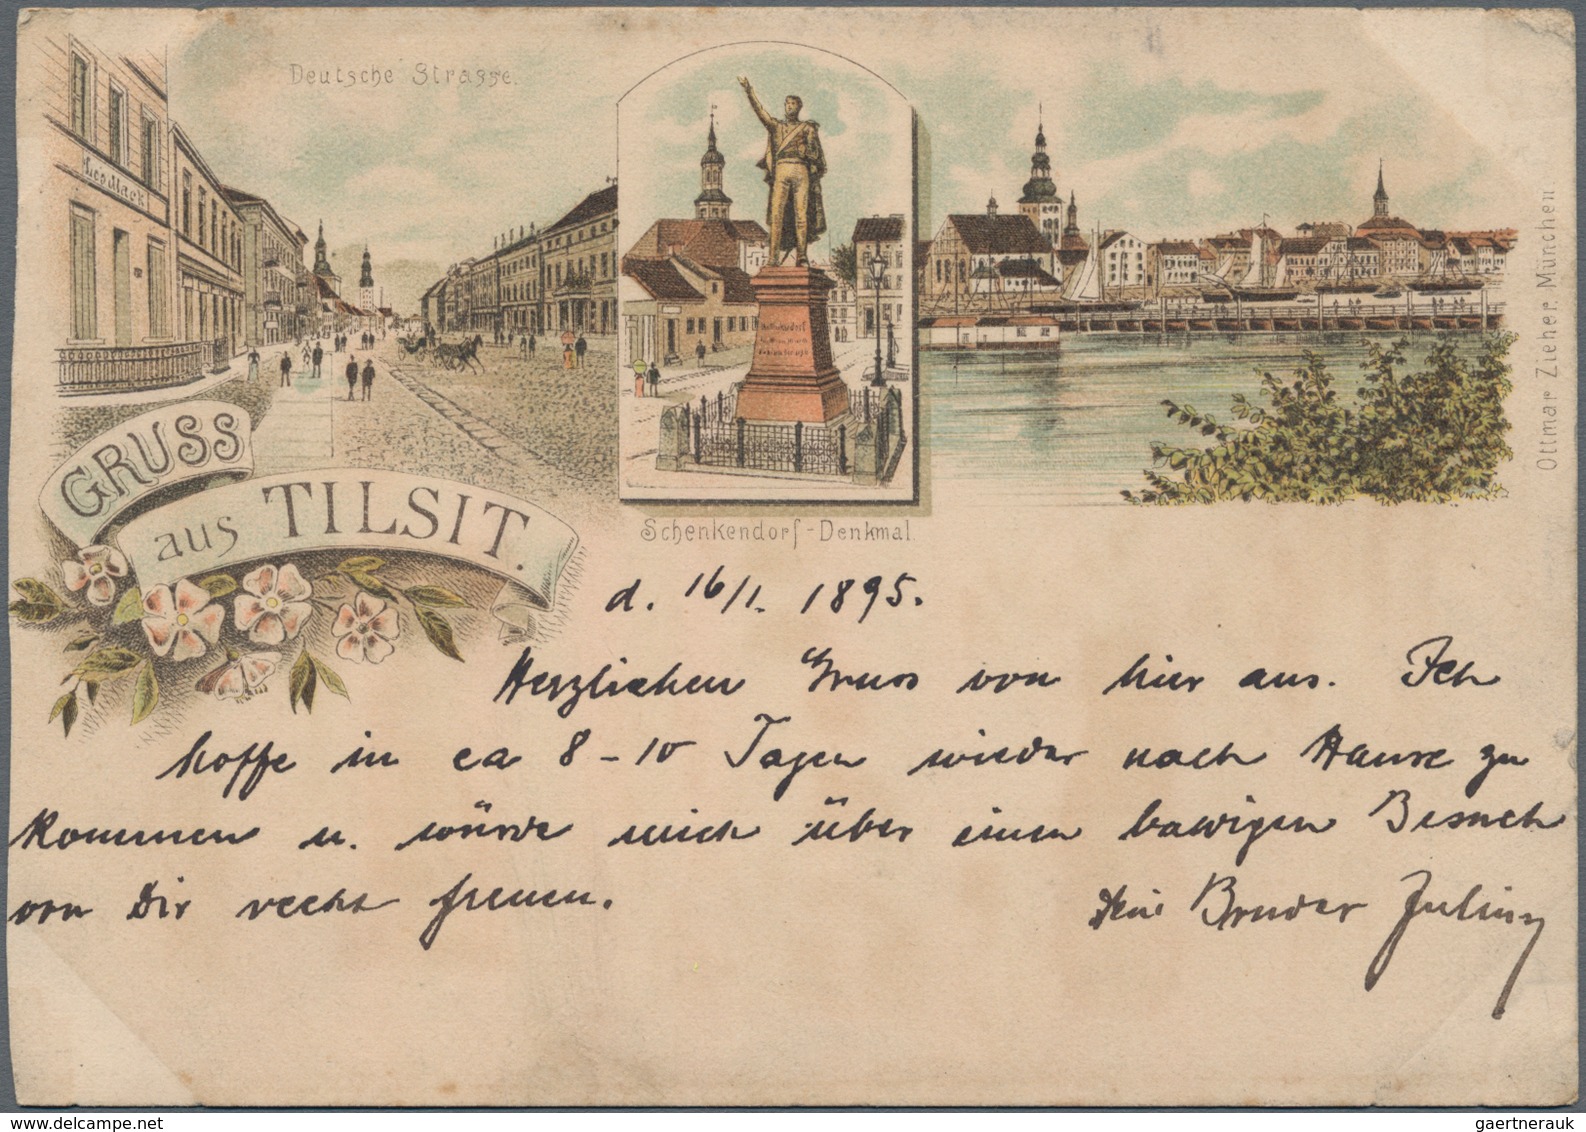 Deutsche Strasse.
GRUSS
aus TILSIT.
Schenkendorf-Denkmal.
Ottmar Zieher. München
d. 16/1. 1895.
Herzlichen Gruss von hier aus. Ich
hoffe in ca 8-10 Tagen wieder nach Hause zu
kommen u. würde mich über einen bawigen Besuch
von Dir recht freuen.
Dein Bruder Julius
www.delcampe.net
gaertnerauk